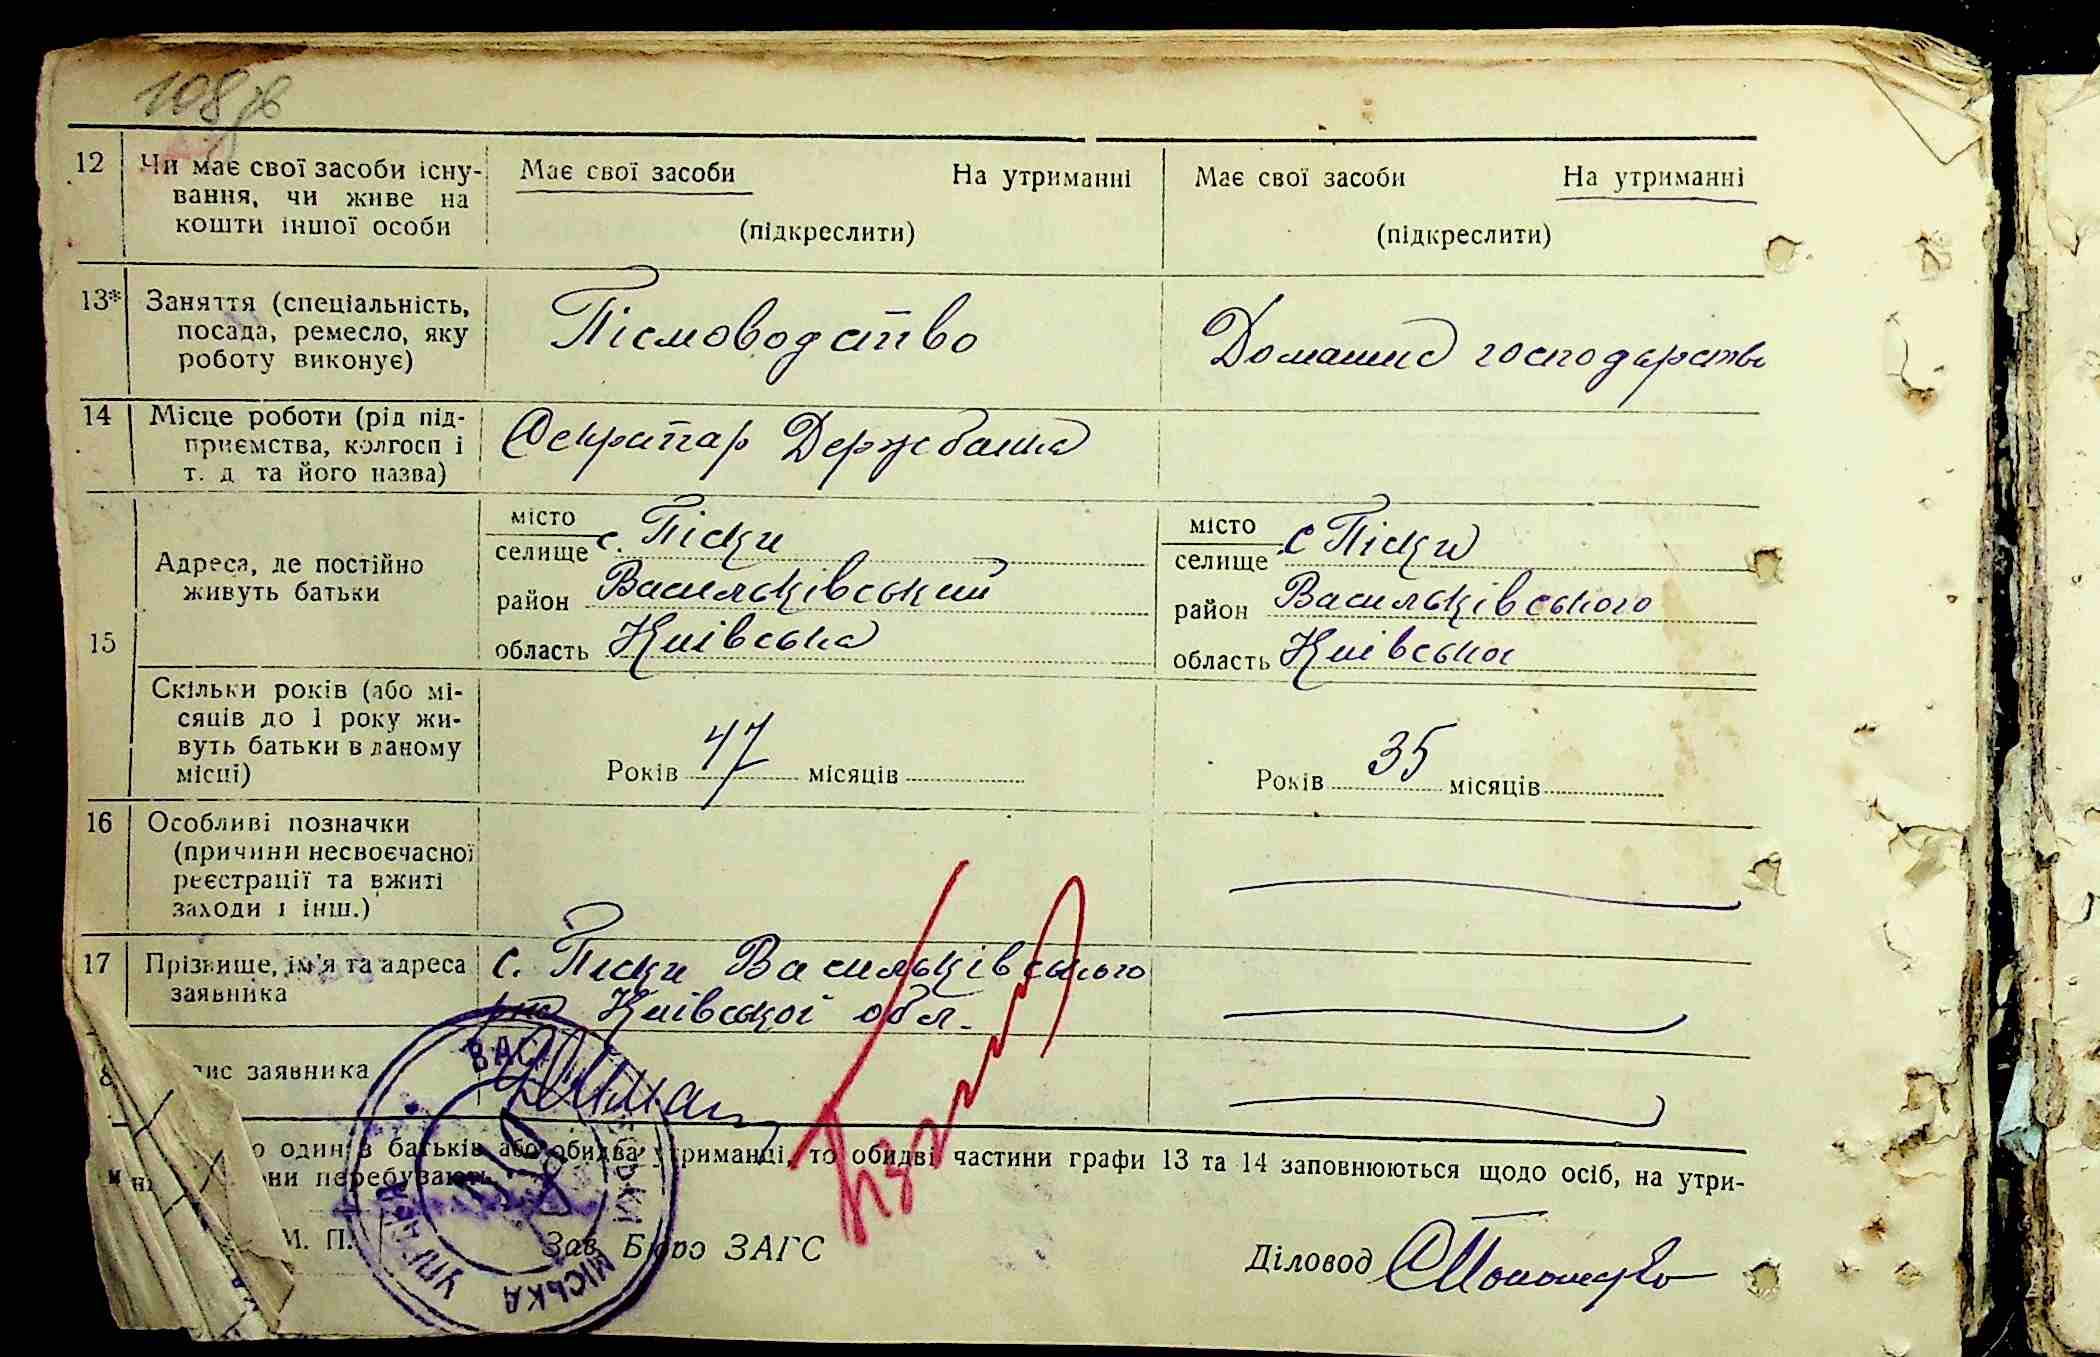 108
12 Чи має свої засоби існу-
вання, чи живе на
кошти іншої особи
Має свої засоби На утриманні
(підкреслити)
Має свої засоби На утриманні
(підкреслити)
13* Заняття (спеціальність,
посада, ремесло, яку
роботу виконує)
Пісмоводство
Домашнє господарство
14 Місце роботи (рід під-
приємства, колгосп і
т. д та його назва)
Секритар Держбанка
15
Адреса, де постійно
живуть батьки
місто
селище с. Піски
район Васильківський
область Київська
місто
селище с Піски
район Васильківського
область Київська
Скільки років (або мі-
сяців до 1 року жи-
вуть батьки в даному
місці)
Років 47 місяців
Років 35 місяців
16 Особливі позначки
(причини несвоєчасної
реєстрації та вжиті
заходи і інш.)
17 Прізвище, ім'я та адреса
заявника
с. Піски Васильківського
р-ну Київської обл.
заявника
о один з батьків або обидва утриманці, то обидві частини графи 13 та 14 заповнюються щодо осіб, на утри-
ни перебувають
М. П.
Зав. Бюро ЗАГС
Діловод
МІСЬКА УПРАВА